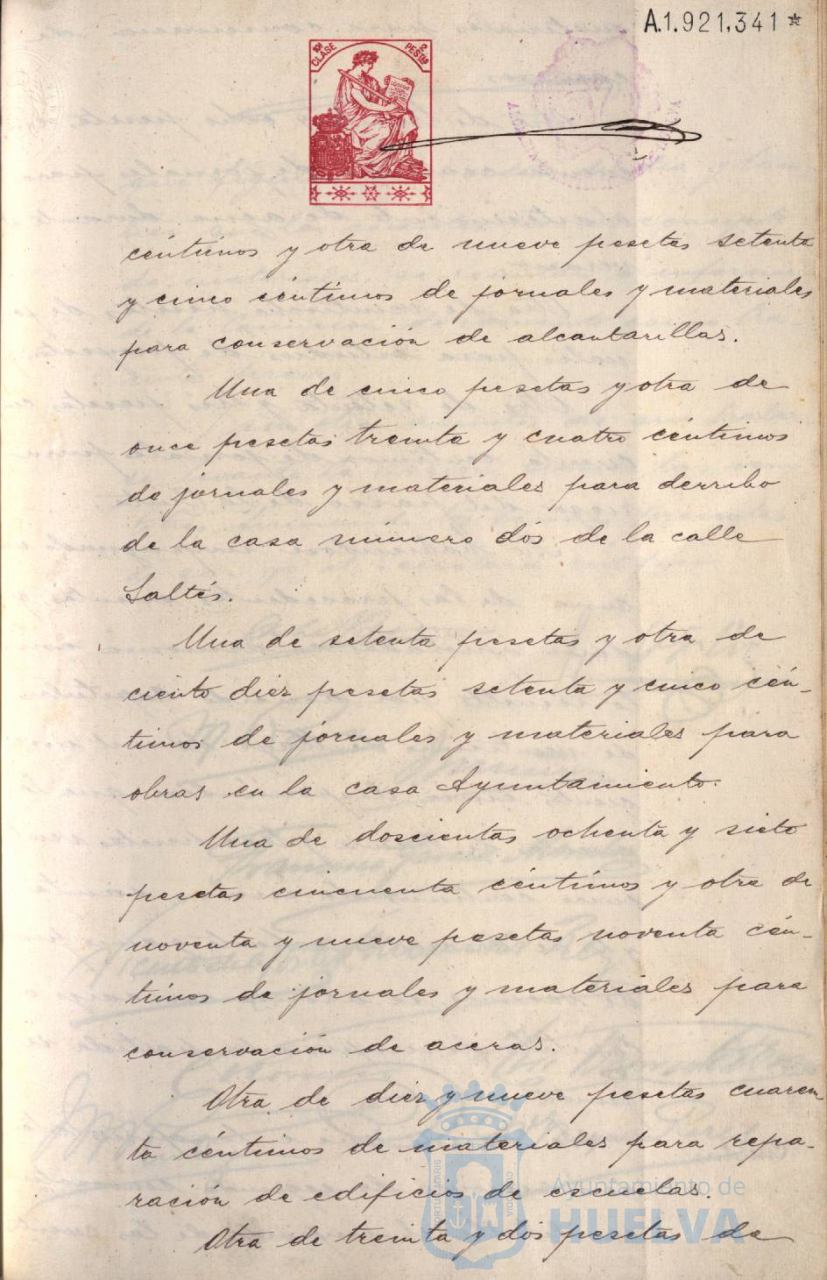 A.1.921,341 *
10ª CLASE 2 PESTAS
ALCALDIA
céntimos y otra de nueve pesetas setenta
y cinco céntimos de jornales y materiales
para conservación de alcantarillas.
Una de cinco pesetas y otra de
once pesetas treinta y cuatro céntimos
de jornales y materiales para derribo
de la casa número dós de la calle
Saltés.
Una de setenta pesetas y otra de
ciento diez pesetas setenta y cinco cén-
timos de jornales y materiales para
obras en la casa Ayuntamiento.
Una de doscientas ochenta y siete
pesetas cincuenta céntimos y otra de
noventa y nueve pesetas noventa cén-
timos de jornales y materiales para
conservación de aceras.
Otra de diez y nueve pesetas cuaren
ta céntimos de materiales para repa-
ración de edificios de escuelas.
Otra de treinta y dos pesetas de
Ayuntamiento de
HUELVA